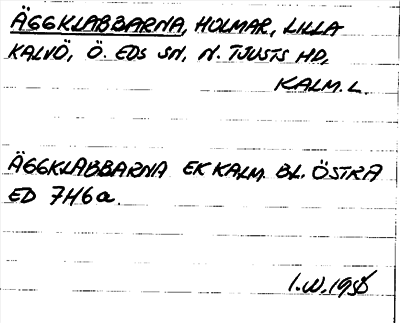 ÄGGKLABBARNA, HOLMAR, LILLA
KALVÖ, Ö. EDS SN, N. TJUSTS HD,
KALM. L.
ÄGGKLABBARNA EK KALM. BL. ÖSTRA
ED 7H6a.
I.W.